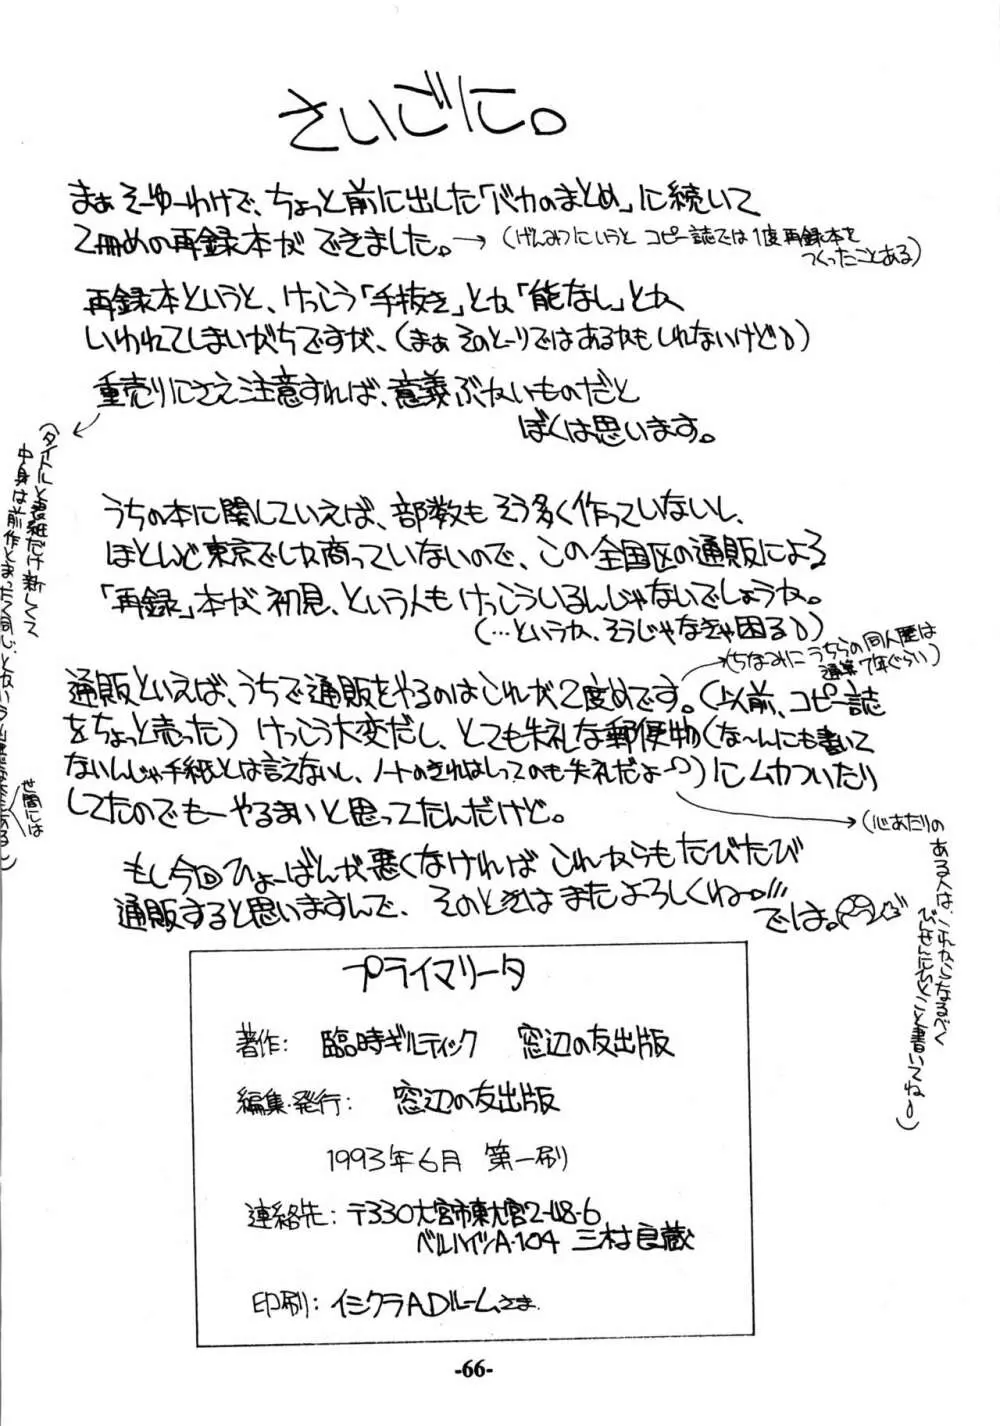 さいごに。
まぁそーゆーわけで、ちょっと前に出した「バカのまとめ」に続いて
2冊めの再録本ができました。→(げんみつにいうと コピー誌では1度再録本を
つくったことある)
再録本というと、けっこう「手抜き」とか「能なし」とか、
いわれてしまいがちですが、(まぁそのとーりではあるかもしれないけど)
重売りにさえ注意すれば、意義ぶかいものだと
ぼくは思います。
(タイトルと表紙だけ新しくて
中身は前作とまったく同じ、とかいう
世間には
うちの本に関していえば、部数もそう多く作っていないし、
ほとんど東京でしか商っていないので、この全国区の通販による
「再録」本が初見、という人もけっこういるんじゃないでしょうか。
(…というか、そうじゃなきゃ困る)
(ちなみに うちらの同人歴は
通算7年ぐらい)
通販といえば、うちで通販をやるのはこれが2度めです。(以前、コピー誌
をちょっと売った) けっこう大変だし、とても失礼な郵便物(な〜んにも書いて
ないんじゃ手紙とは言えないし、ノートのきれはしってのも失礼だよー)にムカついたり
してたのでもーやるまいと思ってたんだけど。
(心あたりの
ある人は、これからなるべく
びんせんにひとこと書いてね)
もし今回ひょーばんが悪くなければ これからもたびたび
通販すると思いますんで、そのときはまたよろしくねー!!!
では。
プライマリータ
著作: 臨時ギルティック 窓辺の友出版
編集・発行: 窓辺の友出版
1993年6月 第一刷
連絡先: 〒330大宮市東大宮2-48-6
ベルハイツA-104 三村良蔵
印刷: イシクラADルームさま.
-66-